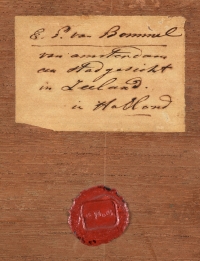 E. P. van Bommel
van amsterdam
een stadgesicht
in Zeeland.
in Holland